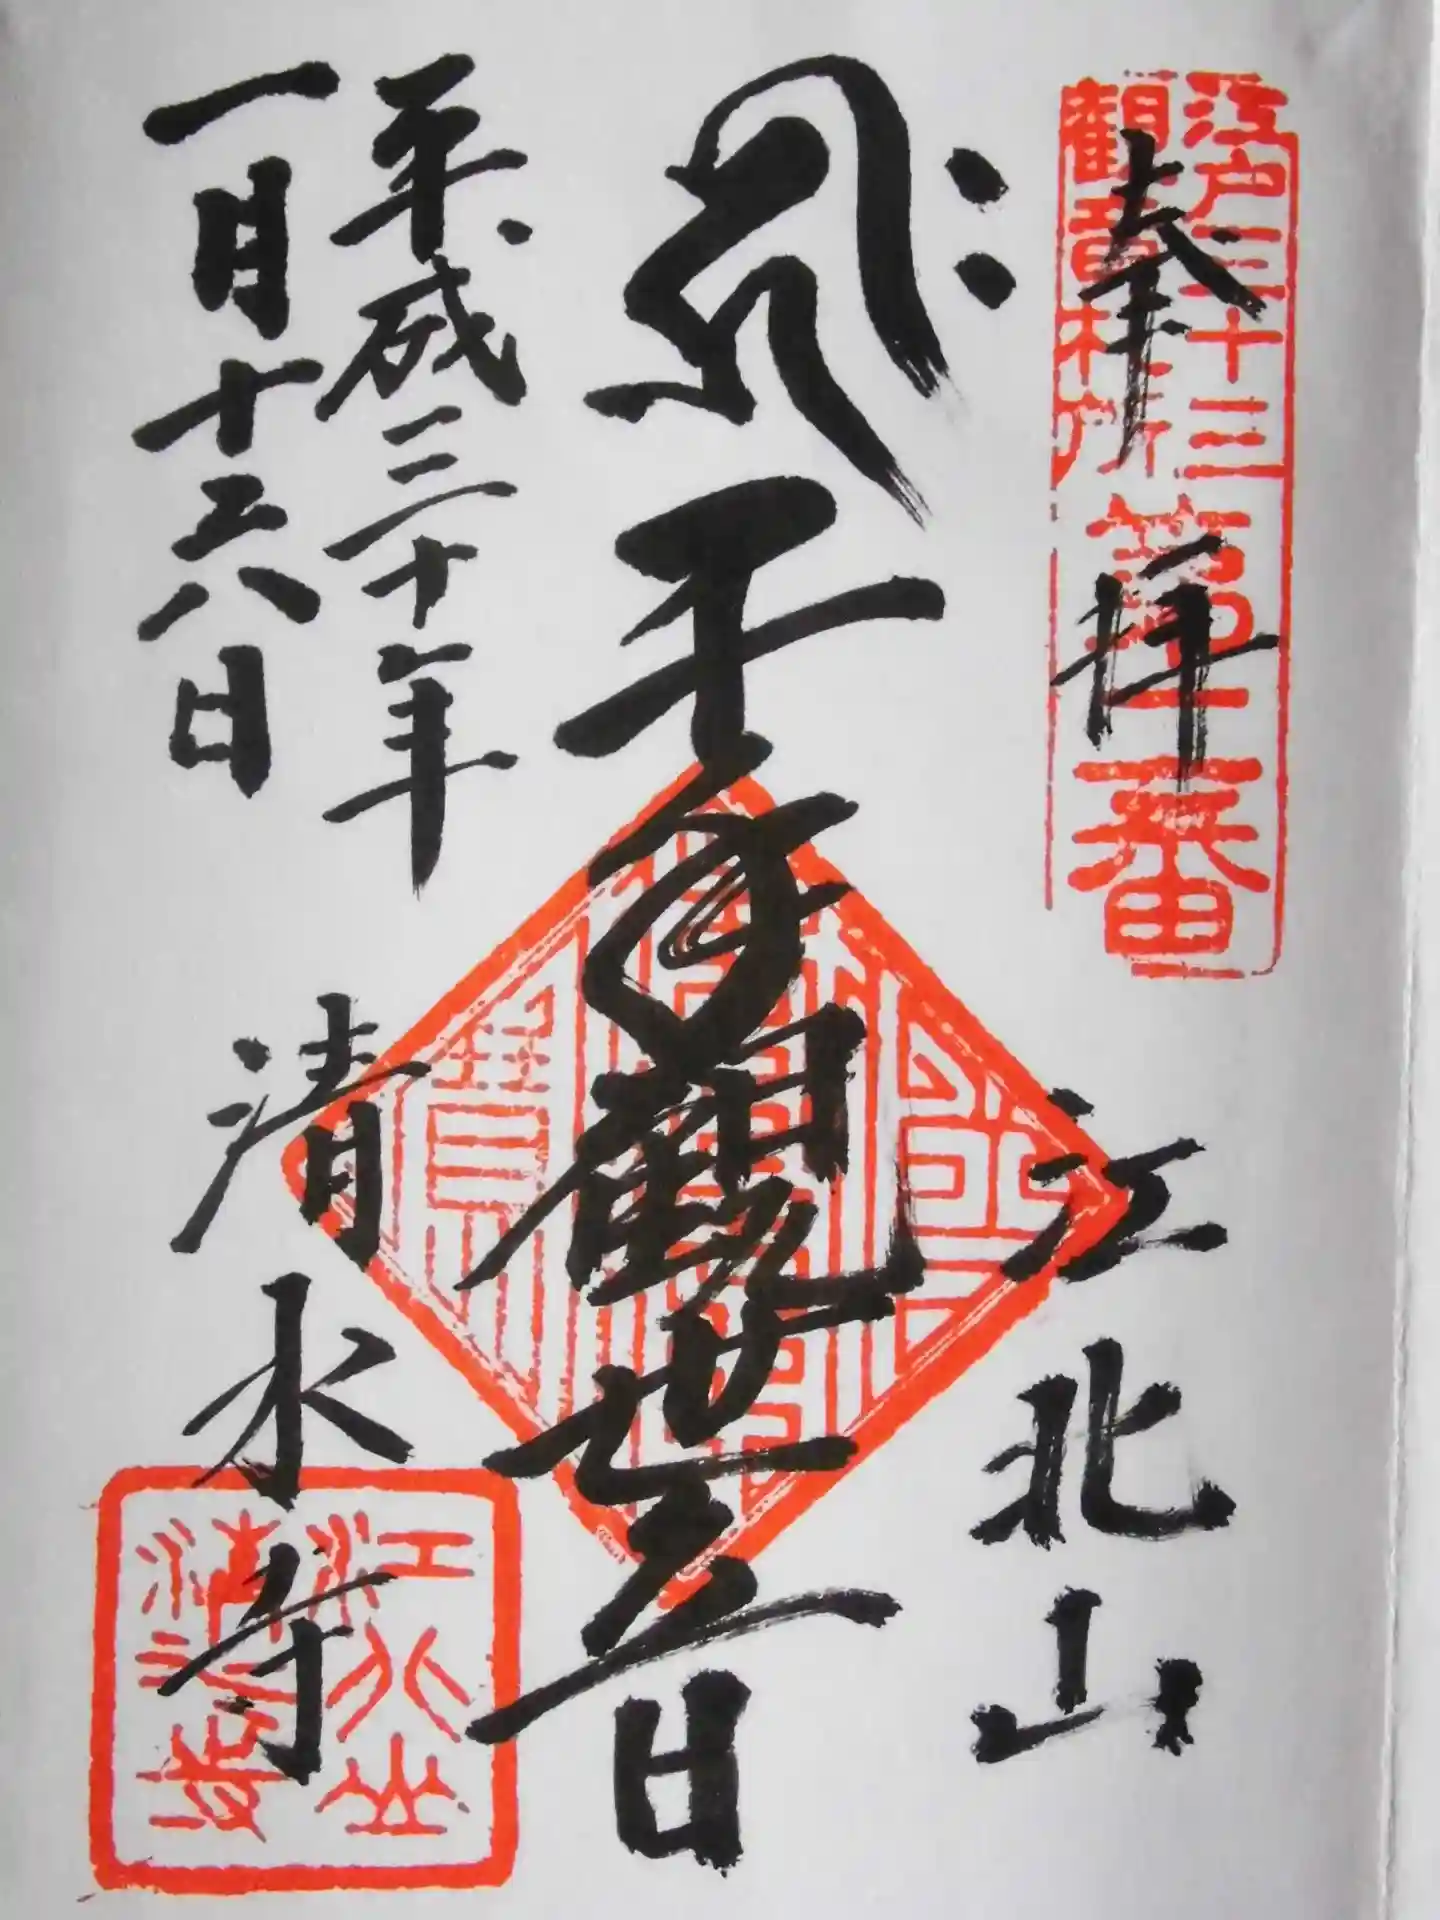 江戸三十三
観音札所
第二番
奉拝
江北山
千手観世音
平成三十年
一月十六日
清水寺
江北山
清水寺